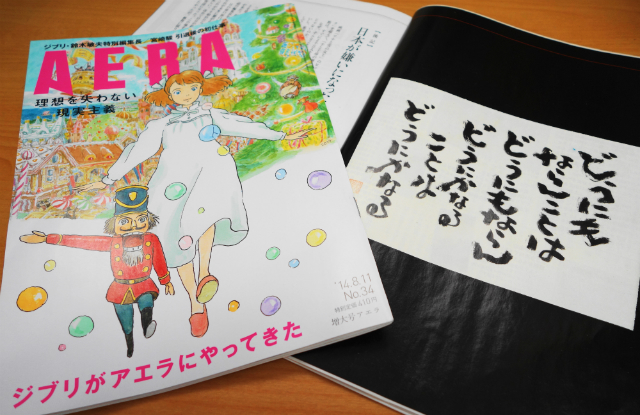 ジブリ・鈴木敏夫特別編集長/宮崎駿 引退後の初仕事
AERA
理想を失わない
現実主義
'14.8.11
No.34
増大号アエラ
ジブリがアエラにやってきた
日本が嫌いになっ
どうにも
ならんことは
どうにもならん
どうにかなる
ことは
どうにかなる